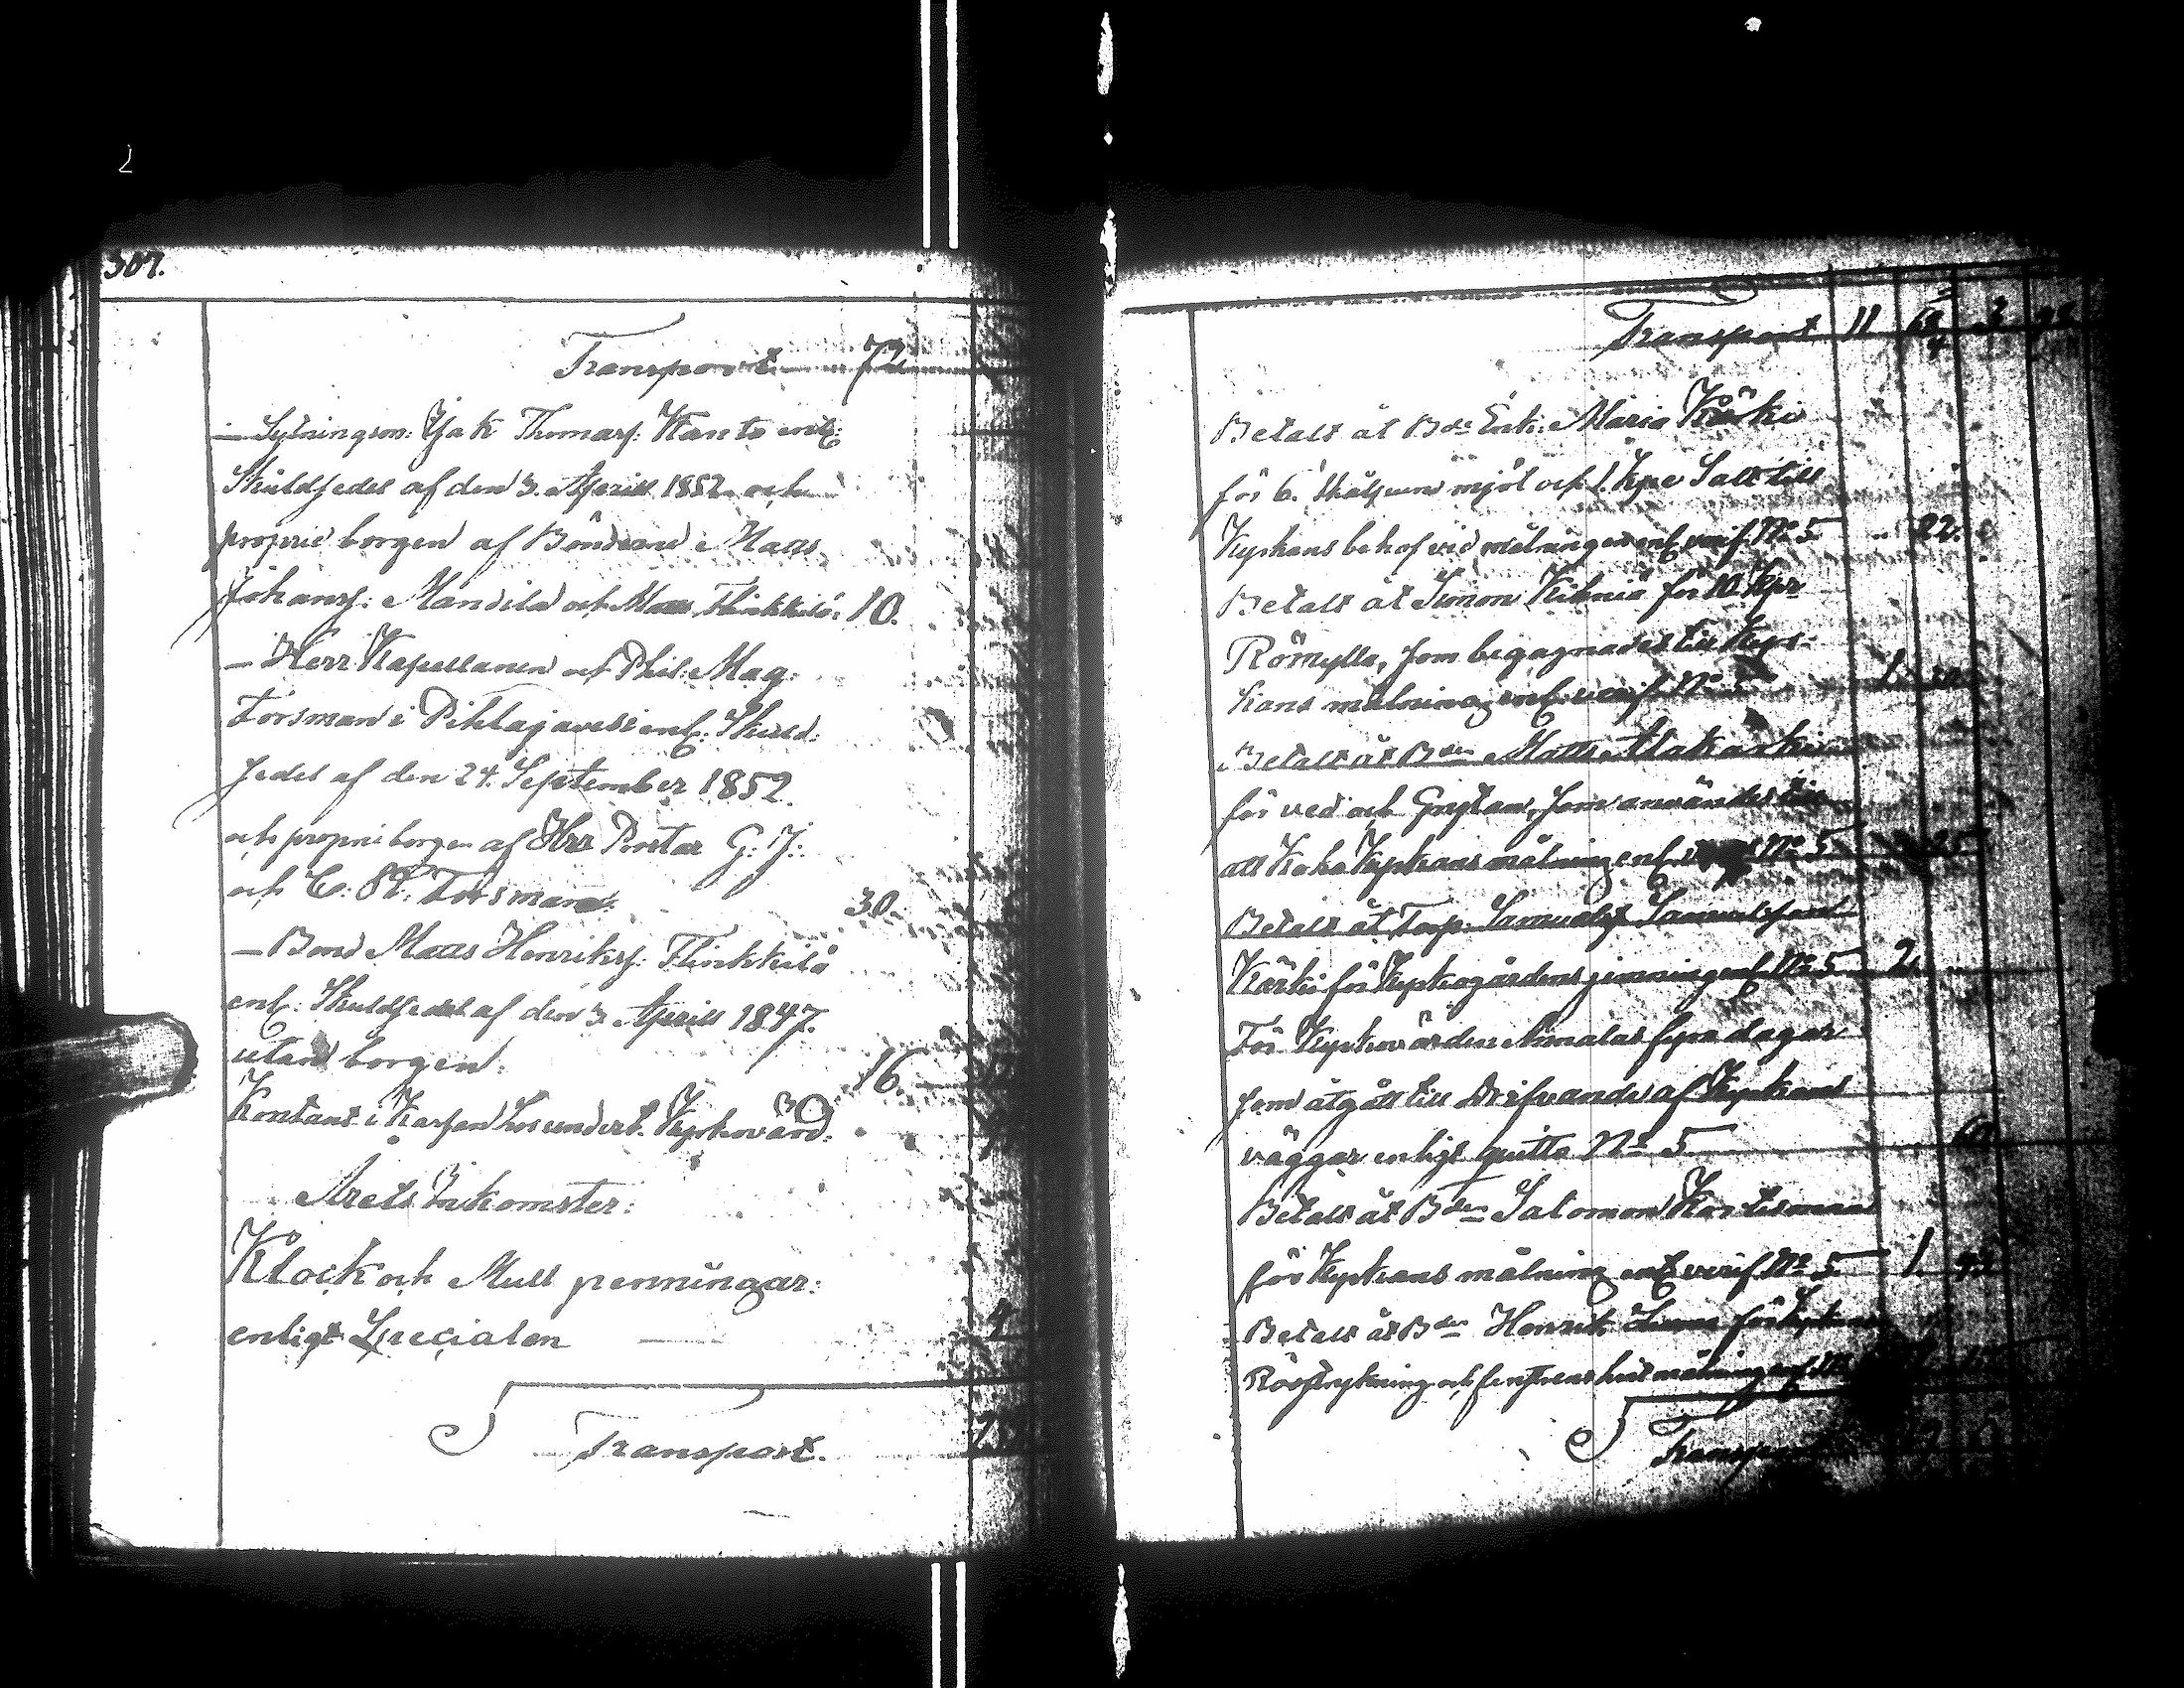 2
307.
Transport 72
— Sytningsm: Jak Thomass: Kanto enl:
Skuldsedel af den 3. Aprill 1852 och
proprie borgen af Bönderne Matts
Johanss: Mandila och Matts Flinkkilä: 10.
— Herr Kapellanen och Phil: Mag:
Forsman i Pihlajavesi enl: Skuld:
sedel af den 24. September 1852.
och proprieborgen af Hrr Pastor G. J:
och C. Forsman: 30.
— Bond Matts Henrikss: Flinkkilä
enl: Skuldsedel af den 3 Aprill 1847.
utan borgen. 16.
Kontant i Kassan hos undert. Kyrkovärd:
Årets Inkomster:
Klock och Mull penningar:
enligt Specialen 4
Transport.
Transport 11
Betalt åt Bde Enk: Maria Kärki
för 6. Skålpund mjöl och 1. Kpe Salt till
Kyrkans behof vid målningen enl verif. No 5 22.
Betalt åt Simon Kihniä för 10 Kpr
Römylla, som begagnades till Kyr-
kans målning enl. verif. No 5 1.
Betalt åt Bden Matts Alakärki
för ved och Grytan, som användes till
att Koka Kyrkans målning enl. No 5 25
Betalt åt Torp. Samuel Samuelsson
Kärki för Kyrkogårdens jemning enl No 5 2.
För Kyrkovärden Anmalas fyra dagar
som åtgått till drifvande af Kyrkans
väggar enligt quitto No 5 60.
Betalt åt Bden Salomon Kortesmaa
för Kyrkans målning enl verif. No 5 1.
Betalt åt Bden Henrik för Kyrkans
Rödstrykning och fenstrens hvit målning enl
Transport